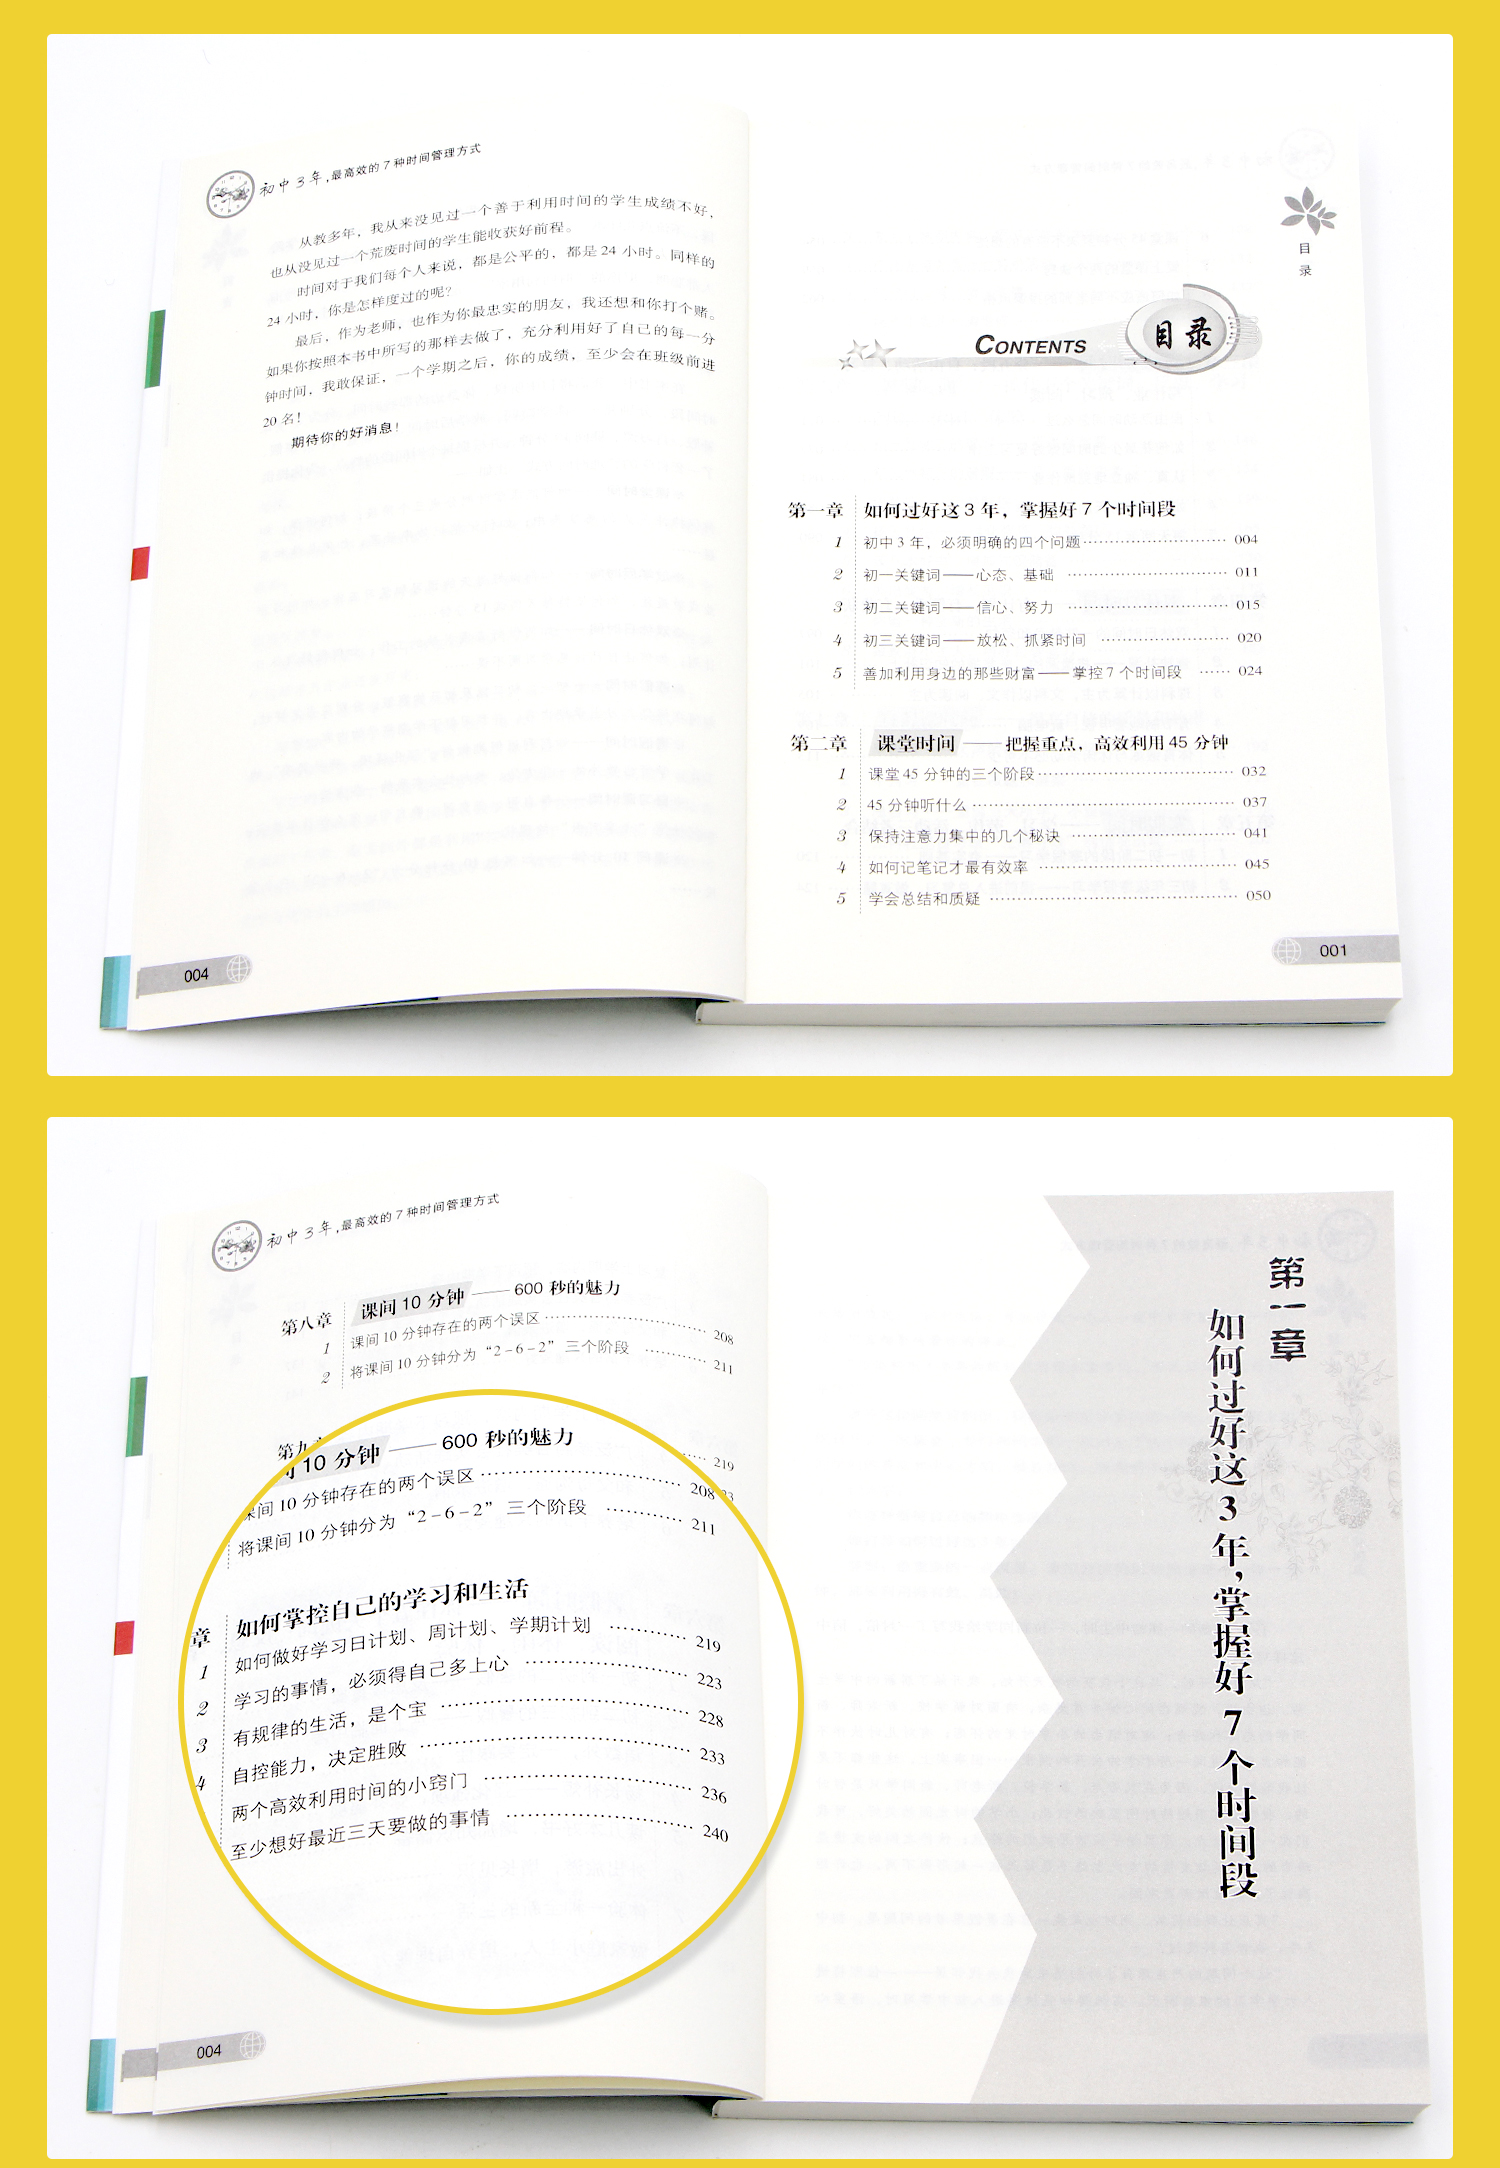 初中3年,最高效的7种时间管理方式
从教多年，我从来没见过一个善于利用时间的学生成绩不好，
也从没见过一个荒废时间的学生能收获好前程。
时间对于我们每个人来说，都是公平的，都是24小时。同样的
24小时，你是怎样度过的呢？
最后，作为老师，也作为你最忠实的朋友，我还想和你打个赌。
如果你按照本书中所写的那样去做了，充分利用好了自己的每一分
钟时间，我敢保证，一个学期之后，你的成绩，至少会在班级前进
20名！
期待你的好消息！
004
目录
CONTENTS 目录
第一章 如何过好这3年，掌握好7个时间段
1 初中3年，必须明确的四个问题 004
2 初一关键词——心态、基础 011
3 初二关键词——信心、努力 015
4 初三关键词——放松、抓紧时间 020
5 善加利用身边的那些财富——掌控7个时间段 024
第二章 课堂时间——把握重点，高效利用45分钟
1 课堂45分钟的三个阶段 032
2 45分钟听什么 037
3 保持注意力集中的几个秘诀 041
4 如何记笔记才最有效率 045
5 学会总结和质疑 050
001
初中3年,最高效的7种时间管理方式
第八章 课间10分钟——600秒的魅力
1 课间10分钟存在的两个误区 208
2 将课间10分钟分为“2－6－2”三个阶段 211
第九
219
10分钟——600秒的魅力
课间10分钟存在的两个误区 208
将课间10分钟分为“2－6－2”三个阶段 211
章 如何掌控自己的学习和生活
1 如何做好学习日计划、周计划、学期计划 219
2 学习的事情，必须得自己多上心 223
3 有规律的生活，是个宝 228
4 自控能力，决定胜败 233
两个高效利用时间的小窍门 236
至少想好最近三天要做的事情 240
004
第一章
如何过好这3年，掌握好7个时间段